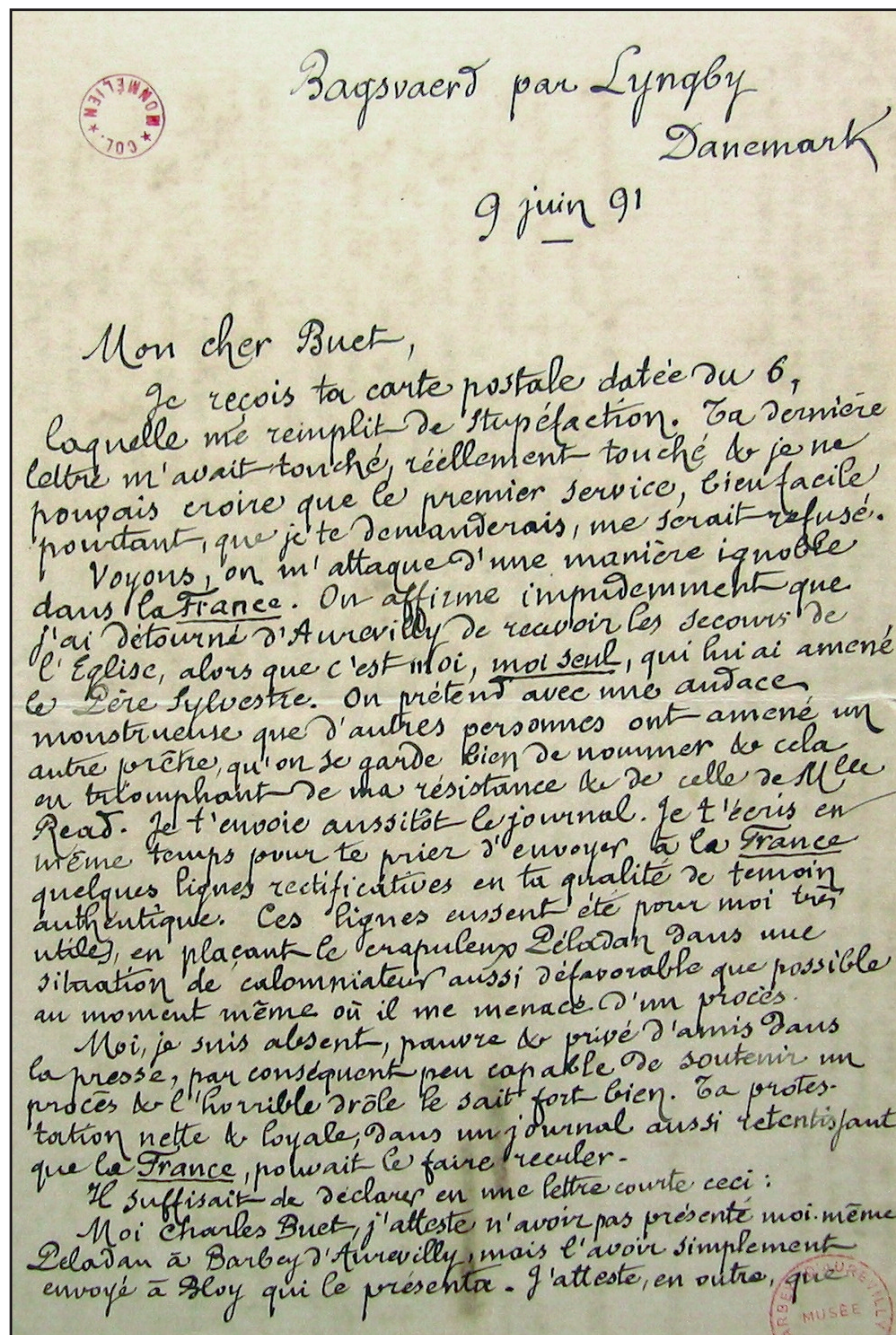 COL. ★ MONMÉLIEN ★
Bagsvaerd par Lyngby
Danemark
9 juin 91
Mon cher Buet,
Je reçois ta carte postale datée du 6,
laquelle me remplit de stupéfaction. Ta dernière
lettre m'avait touché, réellement touché & je ne
pouvais croire que le premier service, bien facile
pourtant, que je te demanderais, me serait refusé.
Voyons, on m'attaque d'une manière ignoble
dans la France. On affirme impudemment que
j'ai détourné d'Aurevilly de recevoir les secours de
l'Eglise, alors que c'est moi, moi seul, qui lui ai amené
le Père Sylvestre. On prétend avec une audace
monstrueuse que d'autres personnes ont amené un
autre prêtre, qu'on se garde bien de nommer & cela
en triomphant de ma résistance & de celle de Mlle
Read. Je t'envoie aussitôt le journal. Je t'écris en
même temps pour te prier d'envoyer à la France
quelques lignes rectificatives en ta qualité de témoin
authentique. Ces lignes eussent été pour moi très
utiles, en plaçant le crapuleux Péladan dans une
situation de calomniateur aussi défavorable que possible
au moment même où il me menace d'un procès.
Moi, je suis absent, pauvre & privé d'amis dans
la presse, par conséquent peu capable de soutenir un
procès & l'horrible drôle le sait fort bien. Ta protes-
tation nette & loyale, dans un journal aussi retentissant
que la France, pouvait le faire reculer.
Il suffisait de déclarer en une lettre courte ceci :
Moi Charles Buet, j'atteste n'avoir pas présenté moi-même
Péladan à Barbey d'Aurevilly, mais l'avoir simplement
envoyé à Bloy qui le présenta. J'atteste, en outre, que
MUSÉE